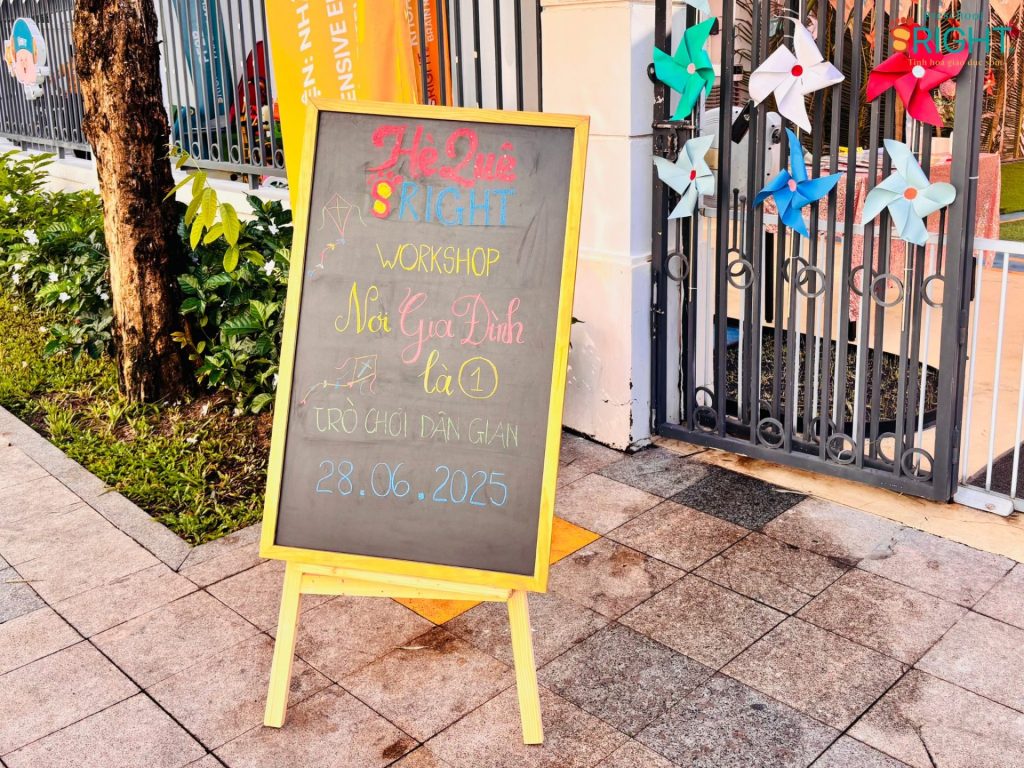 Hè Quê
8RIGHT
WORKSHOP
Nơi Gia Đình
là 1
TRÒ CHƠI DÂN GIAN
28.06.2025
8RIGHT
Tinh hoa giáo dục sớm